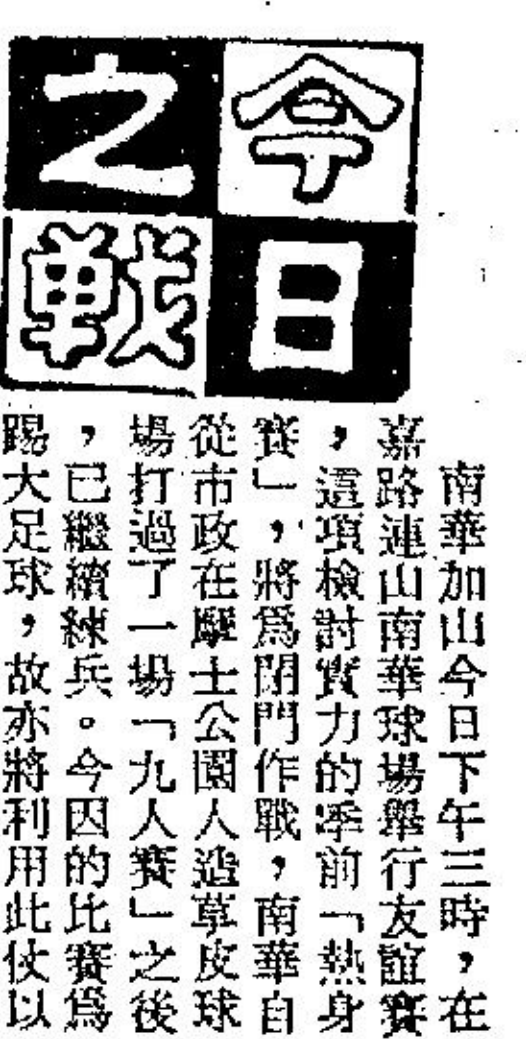 今日
之戰
南華加山今日下午三時，在
嘉路連山南華球場舉行友誼賽
，這項檢討實力的季前「熱身
賽」，將爲閉門作戰，南華自
從市政在摩士公園人造草皮球
場打過了一場「九人賽」之後
，已繼續練兵。今因的比賽爲
踢大足球，故亦將利用此仗以